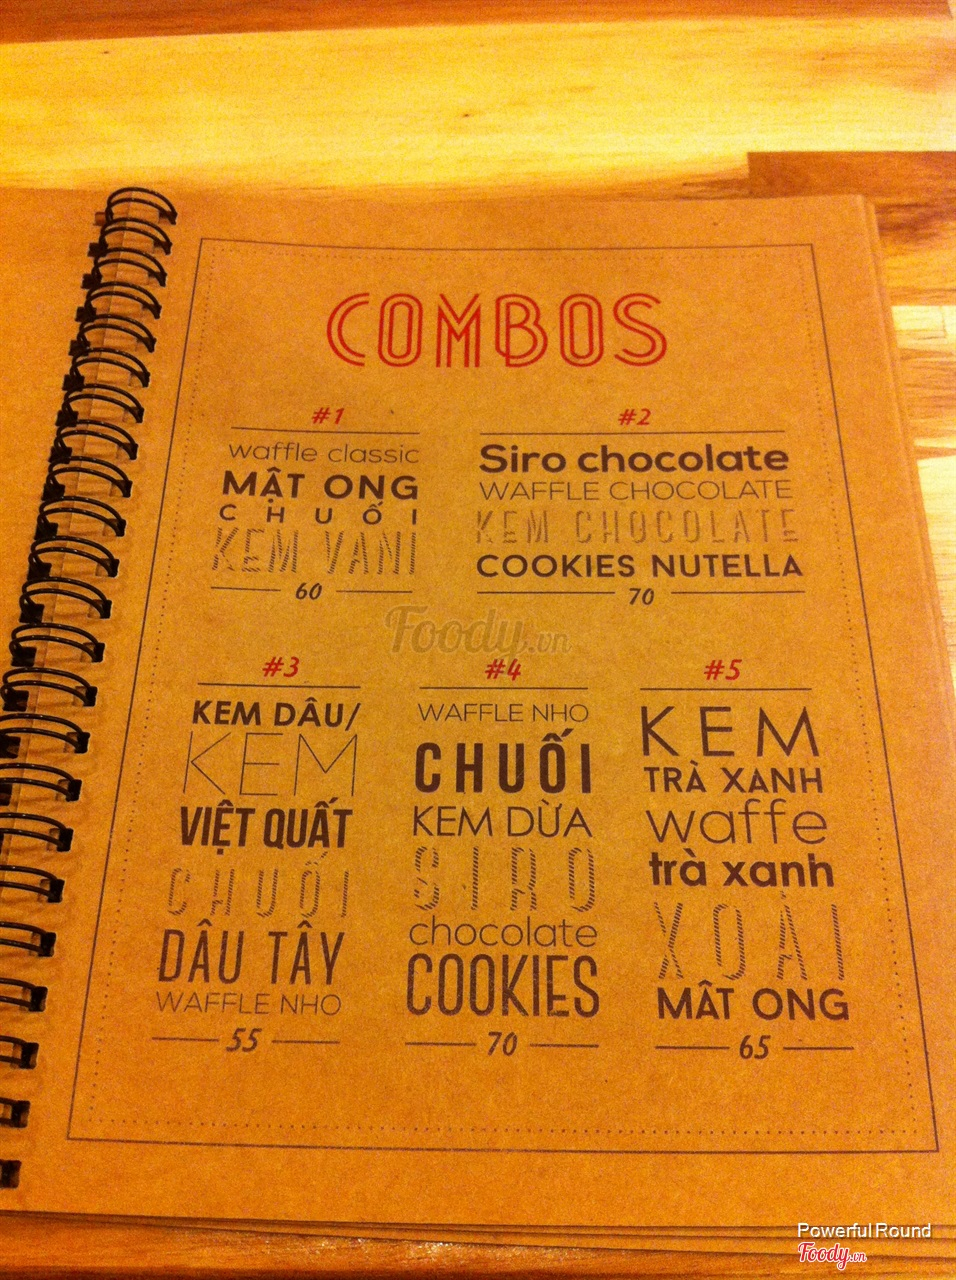 COMBOS
#1
waffle classic
MẬT ONG
CHUỐI
KEM VANI
60
#2
Siro chocolate
WAFFLE CHOCOLATE
KEM CHOCOLATE
COOKIES NUTELLA
70
Foody.vn
#3
KEM DÂU/
KEM
VIỆT QUẤT
CHUỐI
DÂU TÂY
WAFFLE NHO
55
#4
WAFFLE NHO
CHUỐI
KEM DỪA
SIRO
chocolate
COOKIES
70
#5
KEM
TRÀ XANH
waffe
trà xanh
XOÀI
MÂT ONG
65
Powerful Round
Foody.vn